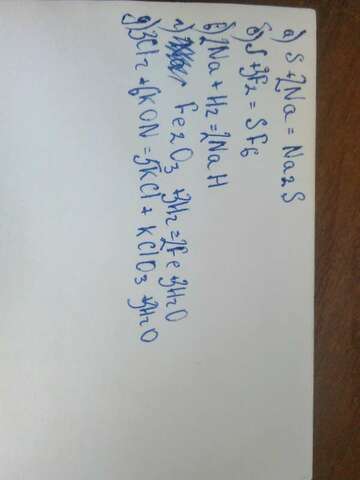 а) S + 2Na = Na2S
б) S + 3F2 = SF6
в) 2Na + H2 = 2NaH
г) Fe2O3 + 3H2 = 2Fe + 3H2O
д) 3Cl2 + 6KOH = 5KCl + KClO3 + 3H2O